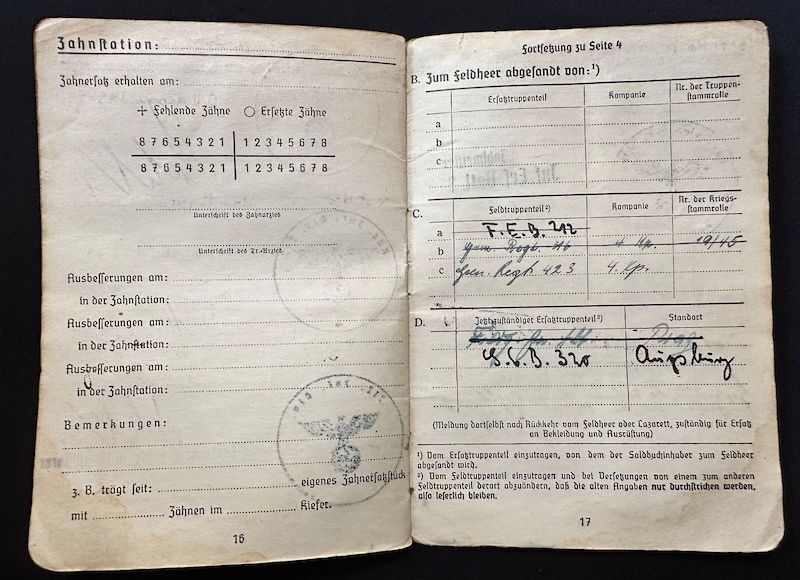 Zahnstation:
Zahnersatz erhalten am:
+ Fehlende Zähne ○ Ersetzte Zähne
8 7 6 5 4 3 2 1 1 2 3 4 5 6 7 8
8 7 6 5 4 3 2 1 1 2 3 4 5 6 7 8
Unterschrift des Zahnarztes
Unterschrift des Tr.-Arztes
Ausbesserungen am:
in der Zahnstation:
Ausbesserungen am:
in der Zahnstation:
Ausbesserungen am:
in der Zahnstation:
Bemerkungen:
z. B. trägt seit: eigenes Zahnersatzstück
mit Zähnen im Kiefer.
16
Fortsetzung zu Seite 4
B. Zum Feldheer abgesandt von:¹)
Ersatztruppenteil Kompanie Nr. der Truppen-
stammrolle
a
b
c
C. Feldtruppenteil²) Kompanie Nr. der Kriegs-
stammrolle
a F.E.B. 212
b 4 Kp. 19/45
c Gren. Regt 423 4. Kp.
D. Jetzt zuständiger Ersatztruppenteil²) Standort
320 Augsburg
(Meldung dortselbst nach Rückkehr vom Feldheer oder Lazarett, zuständig für Ersatz
an Bekleidung und Ausrüstung)
¹) Vom Ersatztruppenteil einzutragen, von dem der Soldbuchinhaber zum Feldheer
abgesandt wird.
²) Vom Feldtruppenteil einzutragen und bei Versetzungen von einem zum anderen
Feldtruppenteil derart abzuändern, daß die alten Angaben nur durchstrichen werden,
also leserlich bleiben.
17